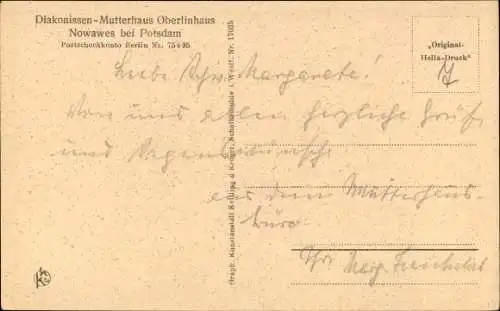 Diakonissen-Mutterhaus Oberlinhaus
Nowawes bei Potsdam
Postscheckkonto Berlin Nr.
„Original-
Helia-Druck"
Liebe Schw. Margarete!
Von uns allen herzliche Grüße
und Segenswünsche
aus dem Mutterhaus-
büro
Ihre Marg.
Graph. Kunstanstalt Kettling & Krüger, Schalksmühle i. Westf. Nr.